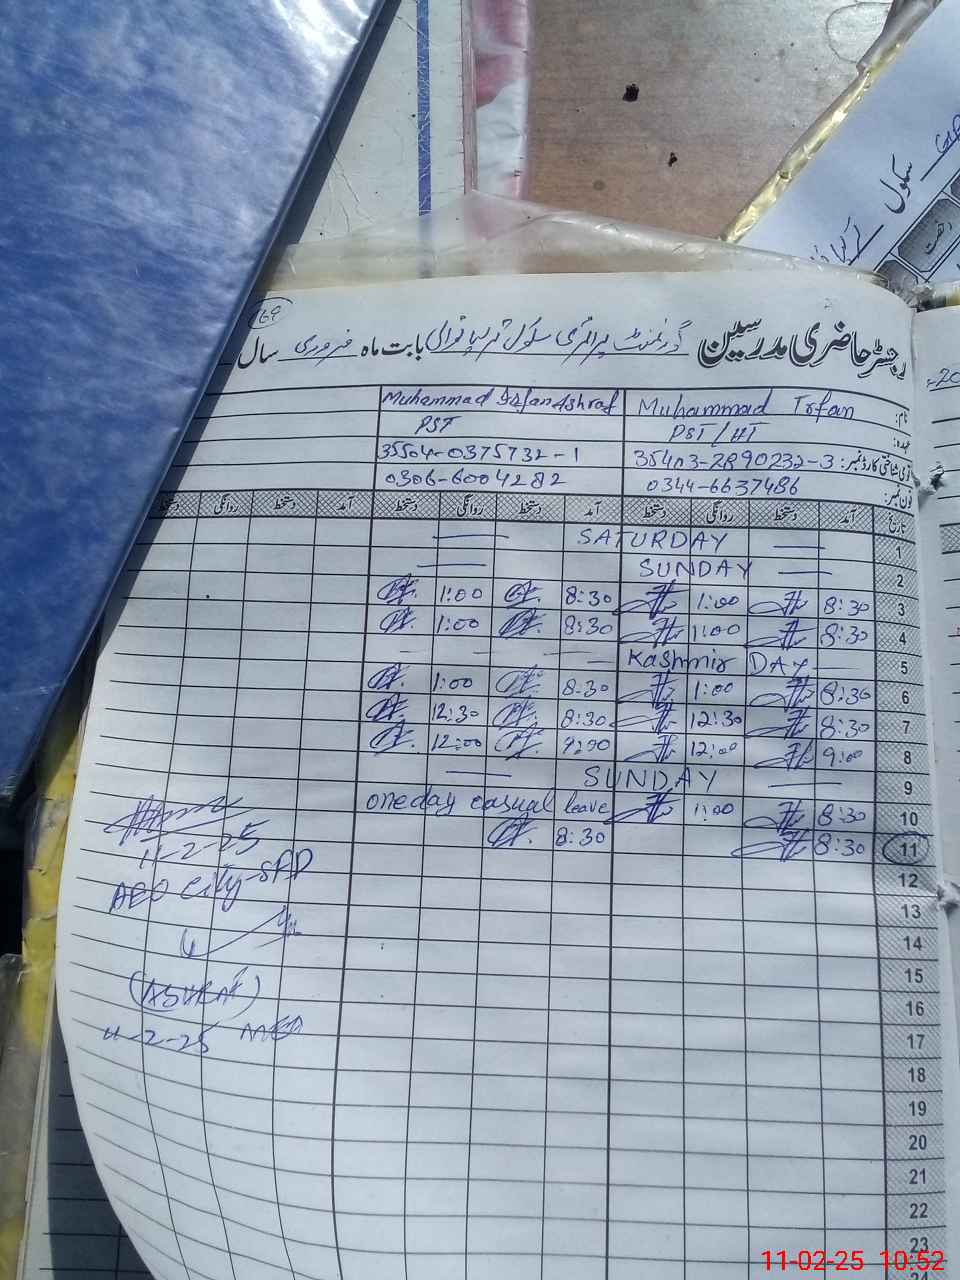 سکول
69
رجسٹر حاضری مدرسین گورنمنٹ پرائمری سکول بابت ماہ فروری سال
نام: Muhammad Irfan Muhammad Irfan Ashraf
عہدہ: PST/HT PST
قومی شناختی کارڈ نمبر: 35403-2890232-3 35504-0375732-1
فون نمبر: 0344-6637486 0306-6004282
تاریخ آمد دستخط روانگی دستخط آمد دستخط روانگی دستخط آمد دستخط روانگی دستخط
1 SATURDAY
2 SUNDAY
3 8:30 1:00 8:30 1:00
4 8:30 1:00 8:30 1:00
5 Kashmir DAY
6 8:30 1:00 8:30 1:00
7 8:30 12:30 8:30 12:30
8 9:00 12:00 9:00 12:00
9 SUNDAY
10 8:30 1:00 one day casual leave
11 8:30 8:30
12
13
14
15
16
17
18
19
20
21
22
23
24
11-2-25
AEO City-SFD
(ASHRAF)
11-2-25 MEA
11-02-25 10:52